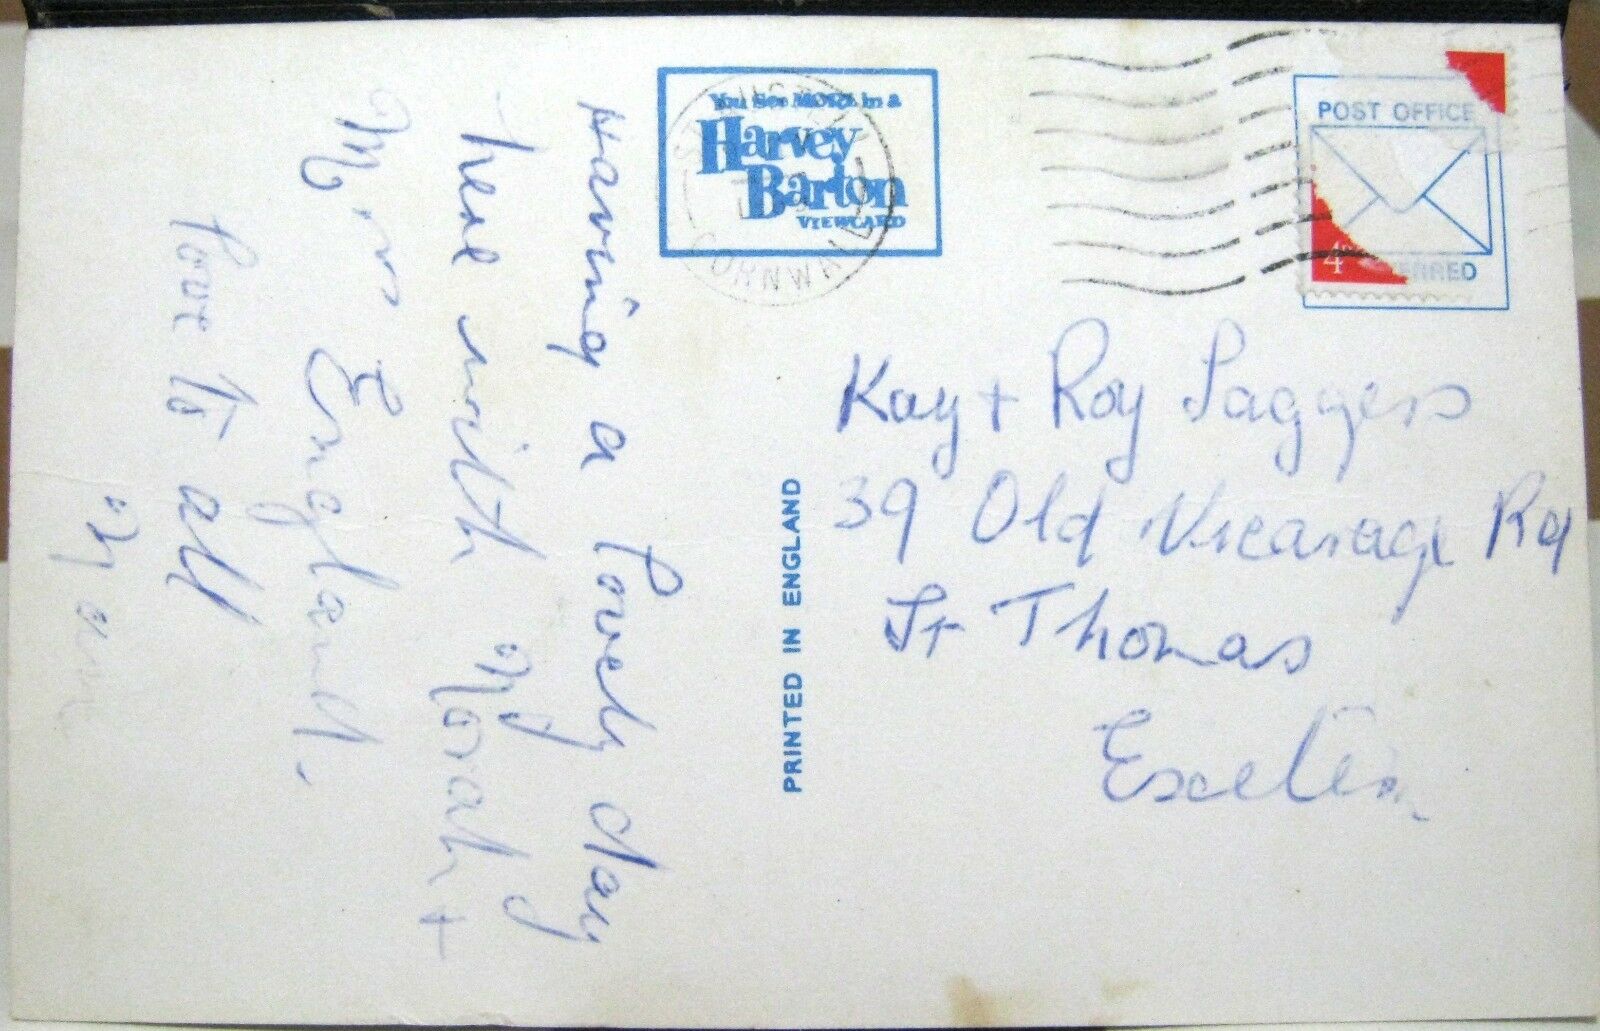 Having a lovely day
here with Norah +
Mrs England.
love to all
You See MORE in a
Harvey
Barton
VIEWCARD
CORNWALL
PRINTED IN ENGLAND
POST OFFICE
4
Kay + Roy Saggers
39 Old Vicarage Rd
St Thomas
Exeter.